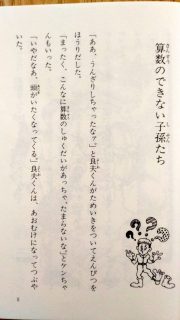 算数のできない子孫たち
「ああ、うんざりしちゃったなァ」と良夫くんがためいきをついてえんぴつを
ほうりだした。
「まったく、こんなに算数のしゅくだいがあっちゃ、たまらないな」とケンちゃ
んもいった。
「いやだなあ。頭がいたくなってくる」良夫くんは、あおむけになってつぶや
いた。
8